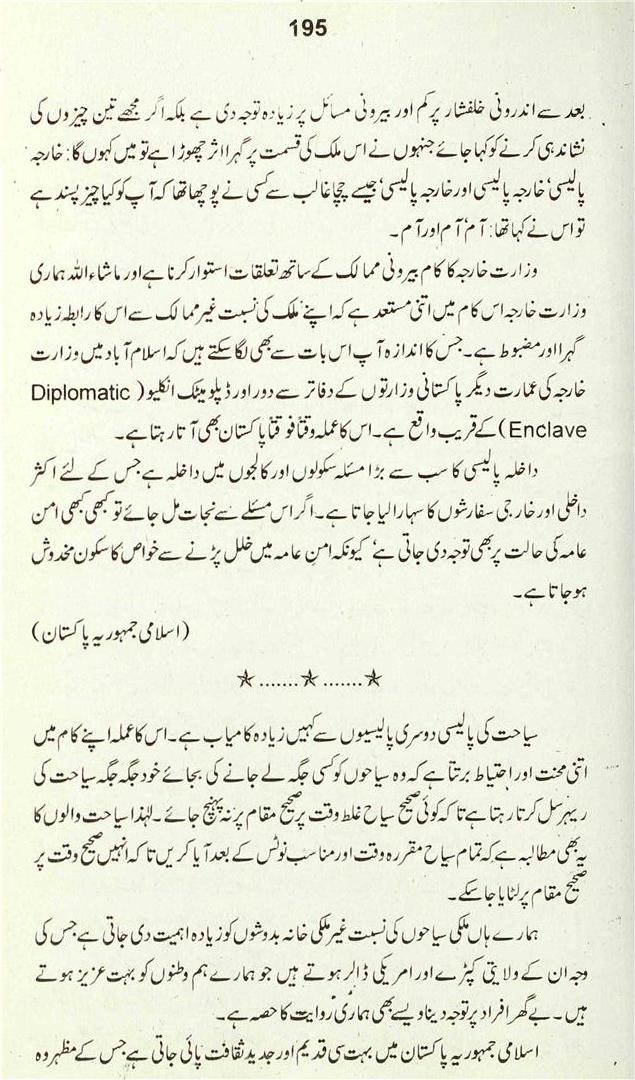 195
بعد سے اندرونی خلفشار پر کم اور بیرونی مسائل پر زیادہ توجہ دی ہے بلکہ اگر مجھے تین چیزوں کی
نشاندہی کرنے کو کہا جائے جنہوں نے اس ملک کی قسمت پر گہرا اثر چھوڑا ہے تو میں کہوں گا: خارجہ
پالیسی‘ خارجہ پالیسی اور خارجہ پالیسی‘ جیسے چچا غالب سے کسی نے پوچھا تھا کہ آپ کو کیا چیز پسند ہے
تو اس نے کہا تھا: آم‘ آم اور آم۔
وزارت خارجہ کا کام بیرونی ممالک کے ساتھ تعلقات استوار کرنا ہے اور ماشاء اللہ ہماری
وزارت خارجہ اس کام میں اتنی مستعد ہے کہ اپنے ملک کی نسبت غیر ممالک سے اس کا رابطہ زیادہ
گہرا اور مضبوط ہے۔ جس کا اندازہ آپ اس بات سے بھی لگا سکتے ہیں کہ اسلام آباد میں وزارت
خارجہ کی عمارت دیگر پاکستانی وزارتوں کے دفاتر سے دور اور ڈپلومیٹک انکلیو (Diplomatic
Enclave) کے قریب واقع ہے۔ اس کا عملہ وقتاً فوقتاً پاکستان بھی آتا رہتا ہے۔
داخلہ پالیسی کا سب سے بڑا مسئلہ سکولوں اور کالجوں میں داخلہ ہے جس کے لئے اکثر
داخلی اور خارجی سفارشوں کا سہارا لیا جاتا ہے۔ اگر اس مسئلے سے نجات مل جائے تو کبھی کبھی امن
عامہ کی حالت پر بھی توجہ دی جاتی ہے‘ کیونکہ امنِ عامہ میں خلل پڑنے سے خواص کا سکون مخدوش
ہو جاتا ہے۔
(اسلامی جمہوریہ پاکستان)
☆.......☆.......☆
سیاحت کی پالیسی دوسری پالیسیوں سے کہیں زیادہ کامیاب ہے۔ اس کا عملہ اپنے کام میں
اتنی محنت اور احتیاط برتتا ہے کہ وہ سیاحوں کو کسی جگہ لے جانے کی بجائے خود جگہ جگہ سیاحت کی
ریہرسل کرتا رہتا ہے تا کہ کوئی صحیح سیاح غلط وقت پر صحیح مقام پر نہ پہنچ جائے۔ لہٰذا سیاحت والوں کا
یہ بھی مطالبہ ہے کہ تمام سیاح مقررہ وقت اور مناسب نوٹس کے بعد آیا کریں تا کہ انہیں صحیح وقت پر
صحیح مقام پر لٹایا جا سکے۔
ہمارے ہاں ملکی سیاحوں کی نسبت غیر ملکی خانہ بدوشوں کو زیادہ اہمیت دی جاتی ہے جس کی
وجہ ان کے ولایتی کپڑے اور امریکی ڈالر ہوتے ہیں جو ہمارے ہم وطنوں کو بہت عزیز ہوتے
ہیں۔ بے گھر افراد پر توجہ دینا ویسے بھی ہماری روایت کا حصہ ہے۔
اسلامی جمہوریہ پاکستان میں بہت سی قدیم اور جدید ثقافت پائی جاتی ہے جس کے مظہر وہ